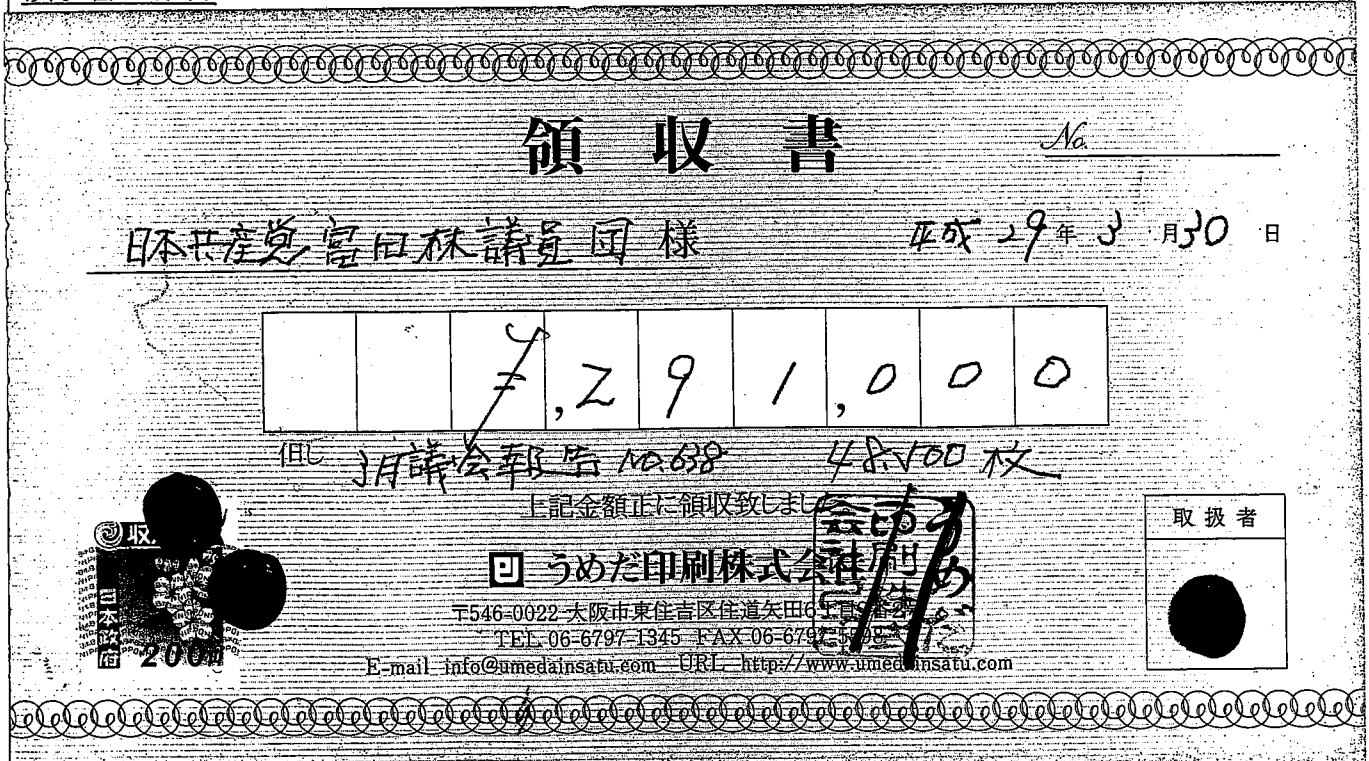 領収書
No.
日本共産党富田林議員団 様
平成 29年 3月30日
¥,291,000
但し 3月議会報告 NO.638 48,500枚
上記金額正に領収致しまし
うめだ印刷株式会社
〒546-0022 大阪市東住吉区住道矢田6丁目
TEL 06-6797-1345 FAX 06-679
E-mail info@umedainsatu.com URL http://www.umedainsatu.com
取扱者
収
日本政府
200円